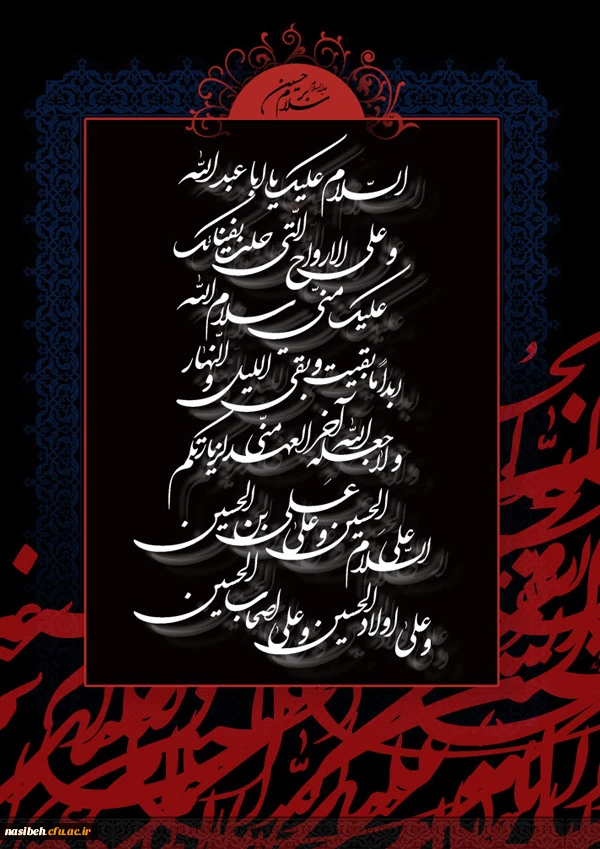 سلام بر حسین
علیه السلام
السّلام علیک یا ابا عبدالله
و علی الارواح الّتی حلت بفنائک
علیک منّی سلام الله
ابداً ما بقیت و بقی اللیل و النّهار
و لا جعله الله آخر العهد منّی لزیارتکم
السّلام علی الحسین و علی علی بن الحسین
و علی اولاد الحسین و علی اصحاب الحسین
nasibeh.cfu.ac.ir